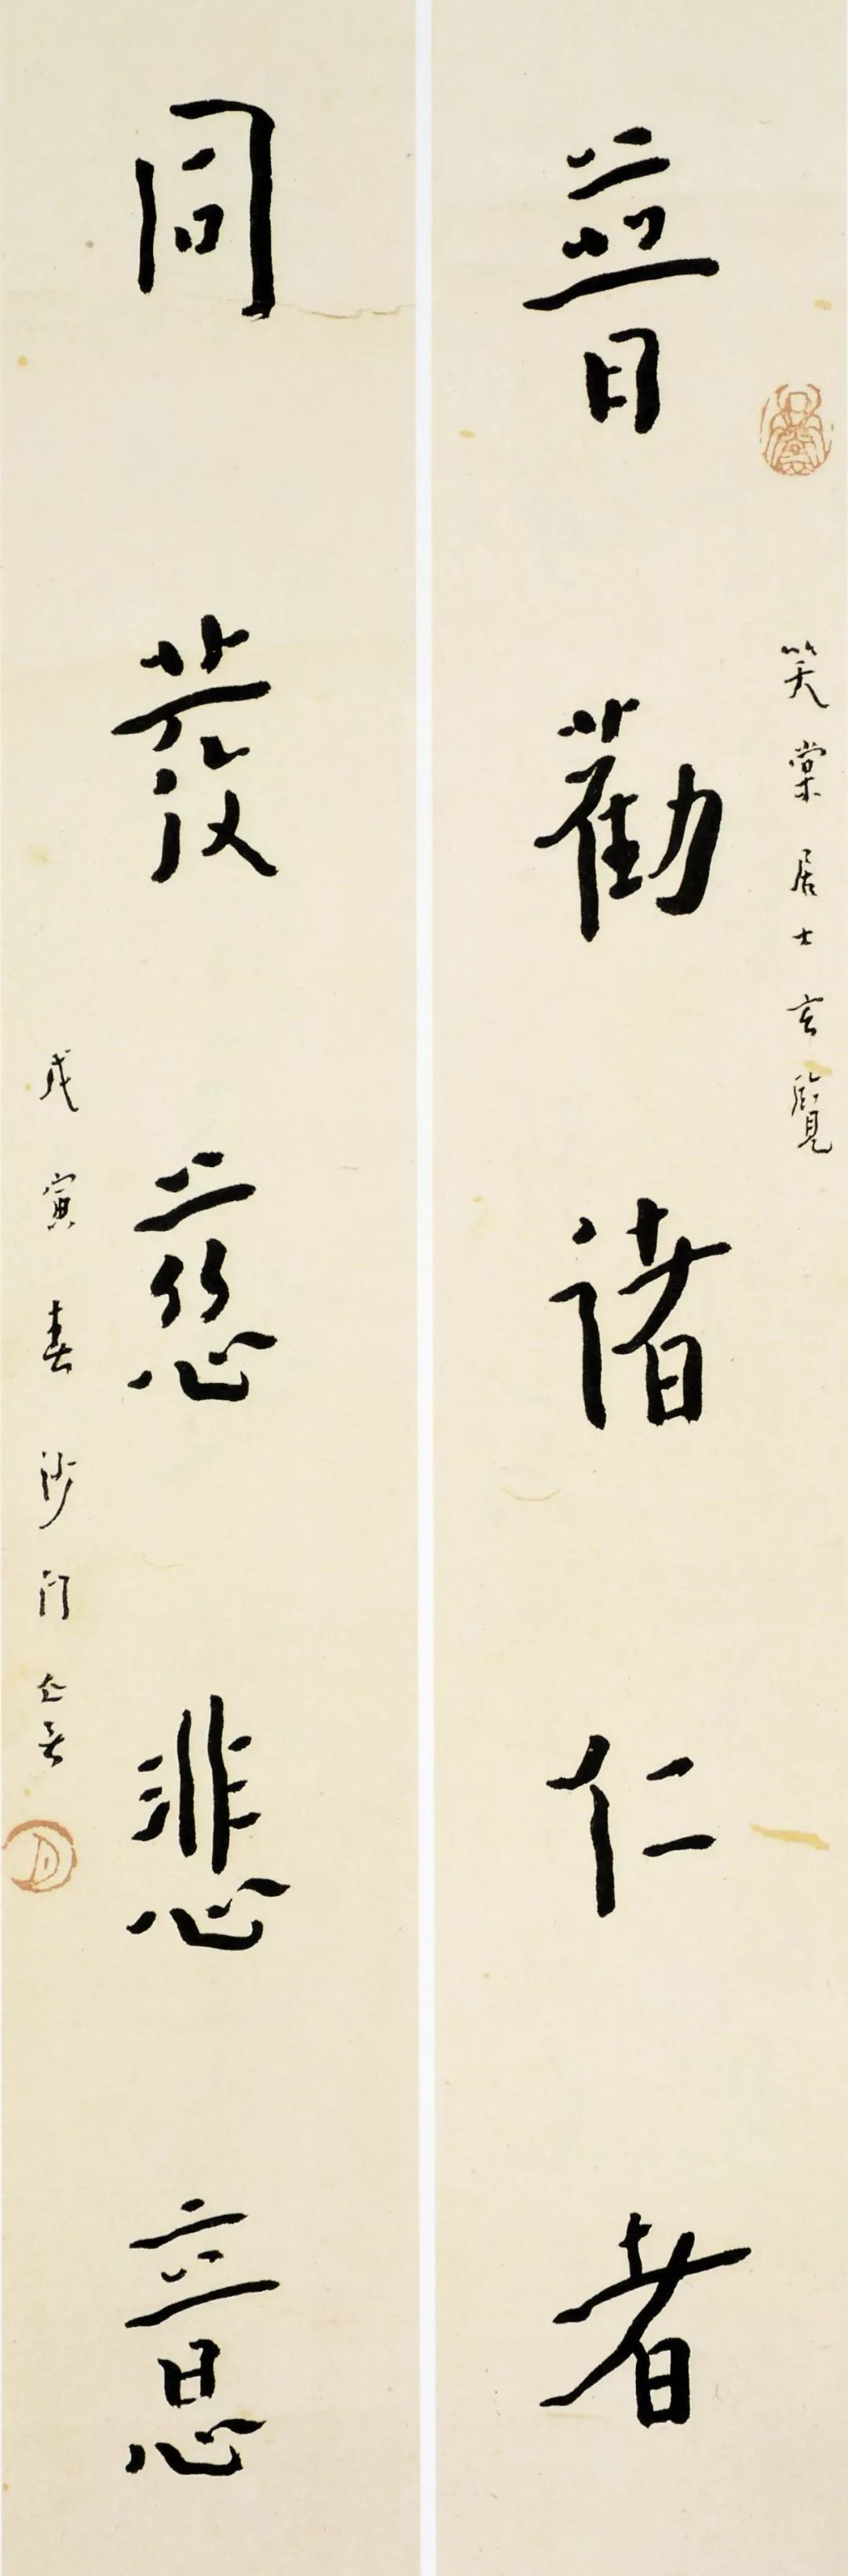 笑棠居士玄覽
普勸諸仁者
同發慈悲意
戊寅春沙門亡言